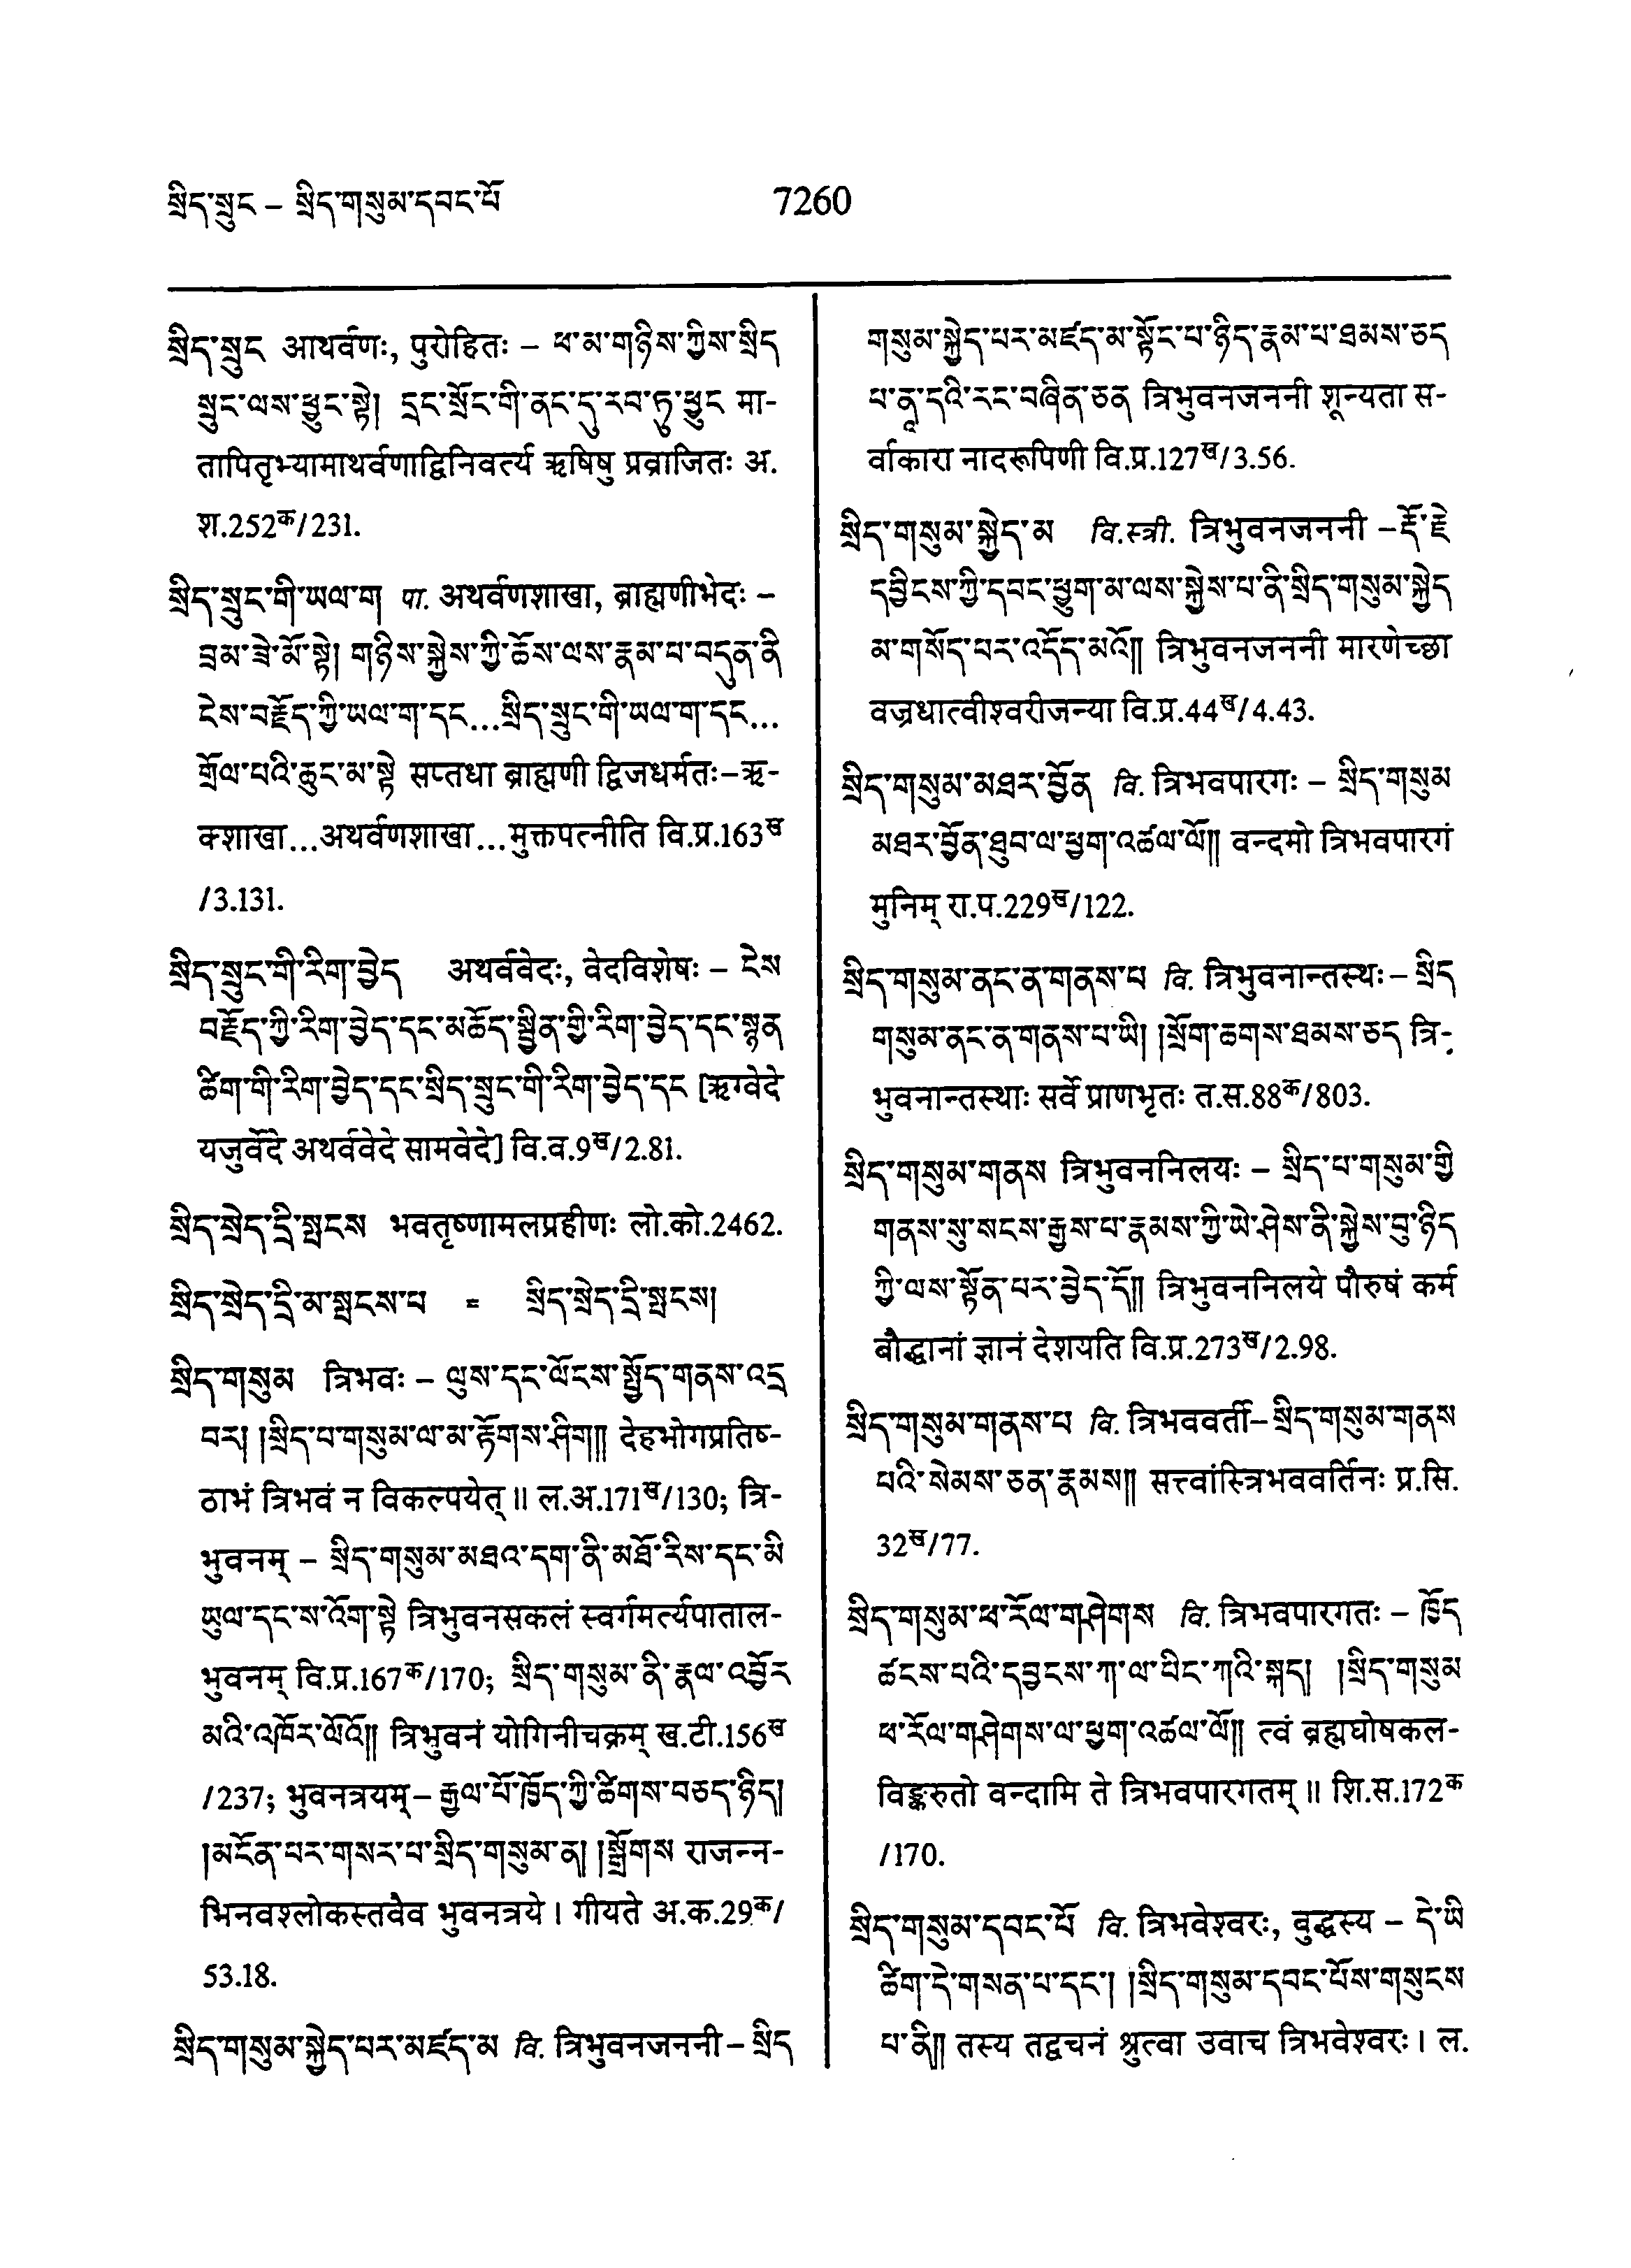 སྲིད་སྲུང – སྲིད་གསུམ་དབང་པོ
7260
སྲིད་སྲུང आथर्वणः, पुरोहितः – ཕ་མ་གཉིས་ཀྱིས་སྲིད
སྲུང་ལས་ཕྱུང་སྟེ། དྲང་སྲོང་གི་ནང་དུ་རབ་ཏུ་ཕྱུང मा-
तापितृभ्यामाथर्वणाद्विनिवर्त्य ऋषिषु प्रव्राजितः अ.
श.252क/231.
སྲིད་སྲུང་གི་ཡལ་ག पा. अथर्वणशाखा, ब्राह्मणीभेदः –
བྲམ་ཟེ་མོ་སྟེ། གཉིས་སྐྱེས་ཀྱི་ཆོས་ལས་རྣམ་པ་བདུན་ནི
ངེས་བརྗོད་ཀྱི་ཡལ་ག་དང...སྲིད་སྲུང་གི་ཡལ་ག་དང...
གྲོལ་པའི་ཆུང་མ་སྟེ सप्तधा ब्राह्मणी द्विजधर्मतः–ऋ-
क्शाखा...अथर्वणशाखा...मुक्तपत्नीति वि.प्र.163ख
/3.131.
སྲིད་སྲུང་གི་རིག་བྱེད अथर्ववेदः, वेदविशेषः – ངེས
བརྗོད་ཀྱི་རིག་བྱེད་དང་མཆོད་སྦྱིན་གྱི་རིག་བྱེད་དང་སྙན
ཚིག་གི་རིག་བྱེད་དང་སྲིད་སྲུང་གི་རིག་བྱེད་དང [ऋग्वेदे
यजुर्वेदे अथर्ववेदे सामवेदे] वि.व.9ख/2.81.
སྲིད་སྲེད་དྲི་སྤངས भवतृष्णामलप्रहीणः लो.को.2462.
སྲིད་སྲེད་དྲི་མ་སྤངས་པ = སྲིད་སྲེད་དྲི་སྤངས།
སྲིད་གསུམ त्रिभवः – ལུས་དང་ལོངས་སྤྱོད་གནས་འདྲ
བར། །སྲིད་པ་གསུམ་ལ་མ་རྟོགས་ཤིག༎ देहभोगप्रतिष्-
ठाभं त्रिभवं न विकल्पयेत् ॥ ल.अ.171ख/130; त्रि-
भुवनम् – སྲིད་གསུམ་མཐའ་དག་ནི་མཐོ་རིས་དང་མི
ཡུལ་དང་ས་འོག་སྟེ त्रिभुवनसकलं स्वर्गमर्त्यपाताल-
भुवनम् वि.प्र.167क/170; སྲིད་གསུམ་ནི་རྣལ་འབྱོར
མའི་འཁོར་ལོའོ༎ त्रिभुवनं योगिनीचक्रम् ख.टी.156ख
/237; भुवनत्रयम् – རྒྱལ་པོ་ཁྱོད་ཀྱི་ཚིགས་བཅད་ཉིད།
།མངོན་པར་གསར་པ་སྲིད་གསུམ་ན། །སྒྲོགས राजन्न-
भिनवश्लोकस्तवैव भुवनत्रये । गीयते अ.क.29क/
53.18.
སྲིད་གསུམ་སྐྱེད་པར་མཛད་མ वि. त्रिभुवनजननी – སྲིད
གསུམ་སྐྱེད་པར་མཛད་མ་སྟོང་པ་ཉིད་རྣམ་པ་ཐམས་ཅད
པ་ནཱ་དའི་རང་བཞིན་ཅན त्रिभुवनजननी शून्यता स-
र्वाकारा नादरूपिणी वि.प्र.127ख/3.56.
སྲིད་གསུམ་སྐྱེད་མ वि.स्त्री. त्रिभुवनजननी –རྡོ་རྗེ
དབྱིངས་ཀྱི་དབང་ཕྱུག་མ་ལས་སྐྱེས་པ་ནི་སྲིད་གསུམ་སྐྱེད
མ་གསོད་པར་འདོད་མའོ༎ त्रिभुवनजननी मारणेच्छा
वज्रधात्वीश्वरीजन्या वि.प्र.44ख/4.43.
སྲིད་གསུམ་མཐར་བྱོན वि. त्रिभवपारगः – སྲིད་གསུམ
མཐར་བྱོན་ཐུབ་ལ་ཕྱག་འཚལ་ལོ༎ वन्दमो त्रिभवपारगं
मुनिम् रा.प.229ख/122.
སྲིད་གསུམ་ནང་ན་གནས་པ वि. त्रिभुवनान्तस्थः – སྲིད
གསུམ་ནང་ན་གནས་པ་ཡི། །སྲོག་ཆགས་ཐམས་ཅད त्रि-
भुवनान्तस्थाः सर्वे प्राणभृतः त.स.88क/803.
སྲིད་གསུམ་གནས त्रिभुवननिलयः – སྲིད་པ་གསུམ་གྱི
གནས་སུ་སངས་རྒྱས་པ་རྣམས་ཀྱི་ཡེ་ཤེས་ནི་སྐྱེས་བུ་ཉིད
ཀྱི་ལས་སྟོན་པར་བྱེད་དོ༎ त्रिभुवननिलये पौरुषं कर्म
बौद्धानां ज्ञानं देशयति वि.प्र.273ख/2.98.
སྲིད་གསུམ་གནས་པ वि. त्रिभववर्ती– སྲིད་གསུམ་གནས
པའི་སེམས་ཅན་རྣམས༎ सत्त्वांस्त्रिभववर्तिनः प्र.सि.
32ख/77.
སྲིད་གསུམ་ཕ་རོལ་གཤེགས वि. त्रिभवपारगतः – ཁྱོད
ཚངས་པའི་དབྱངས་ཀ་ལ་པིང་ཀའི་སྐད། །སྲིད་གསུམ
ཕ་རོལ་གཤེགས་ལ་ཕྱག་འཚལ་ལོ༎ त्वं ब्रह्मघोषकल-
विङ्करुतो वन्दामि ते त्रिभवपारगतम् ॥ शि.स.172क
/170.
སྲིད་གསུམ་དབང་པོ वि. त्रिभवेश्वरः, बुद्धस्य – དེ་ཡི
ཚིག་དེ་གསན་པ་དང་། །སྲིད་གསུམ་དབང་པོས་གསུངས
པ་ནི༎ तस्य तद्वचनं श्रुत्वा उवाच त्रिभवेश्वरः । ल.